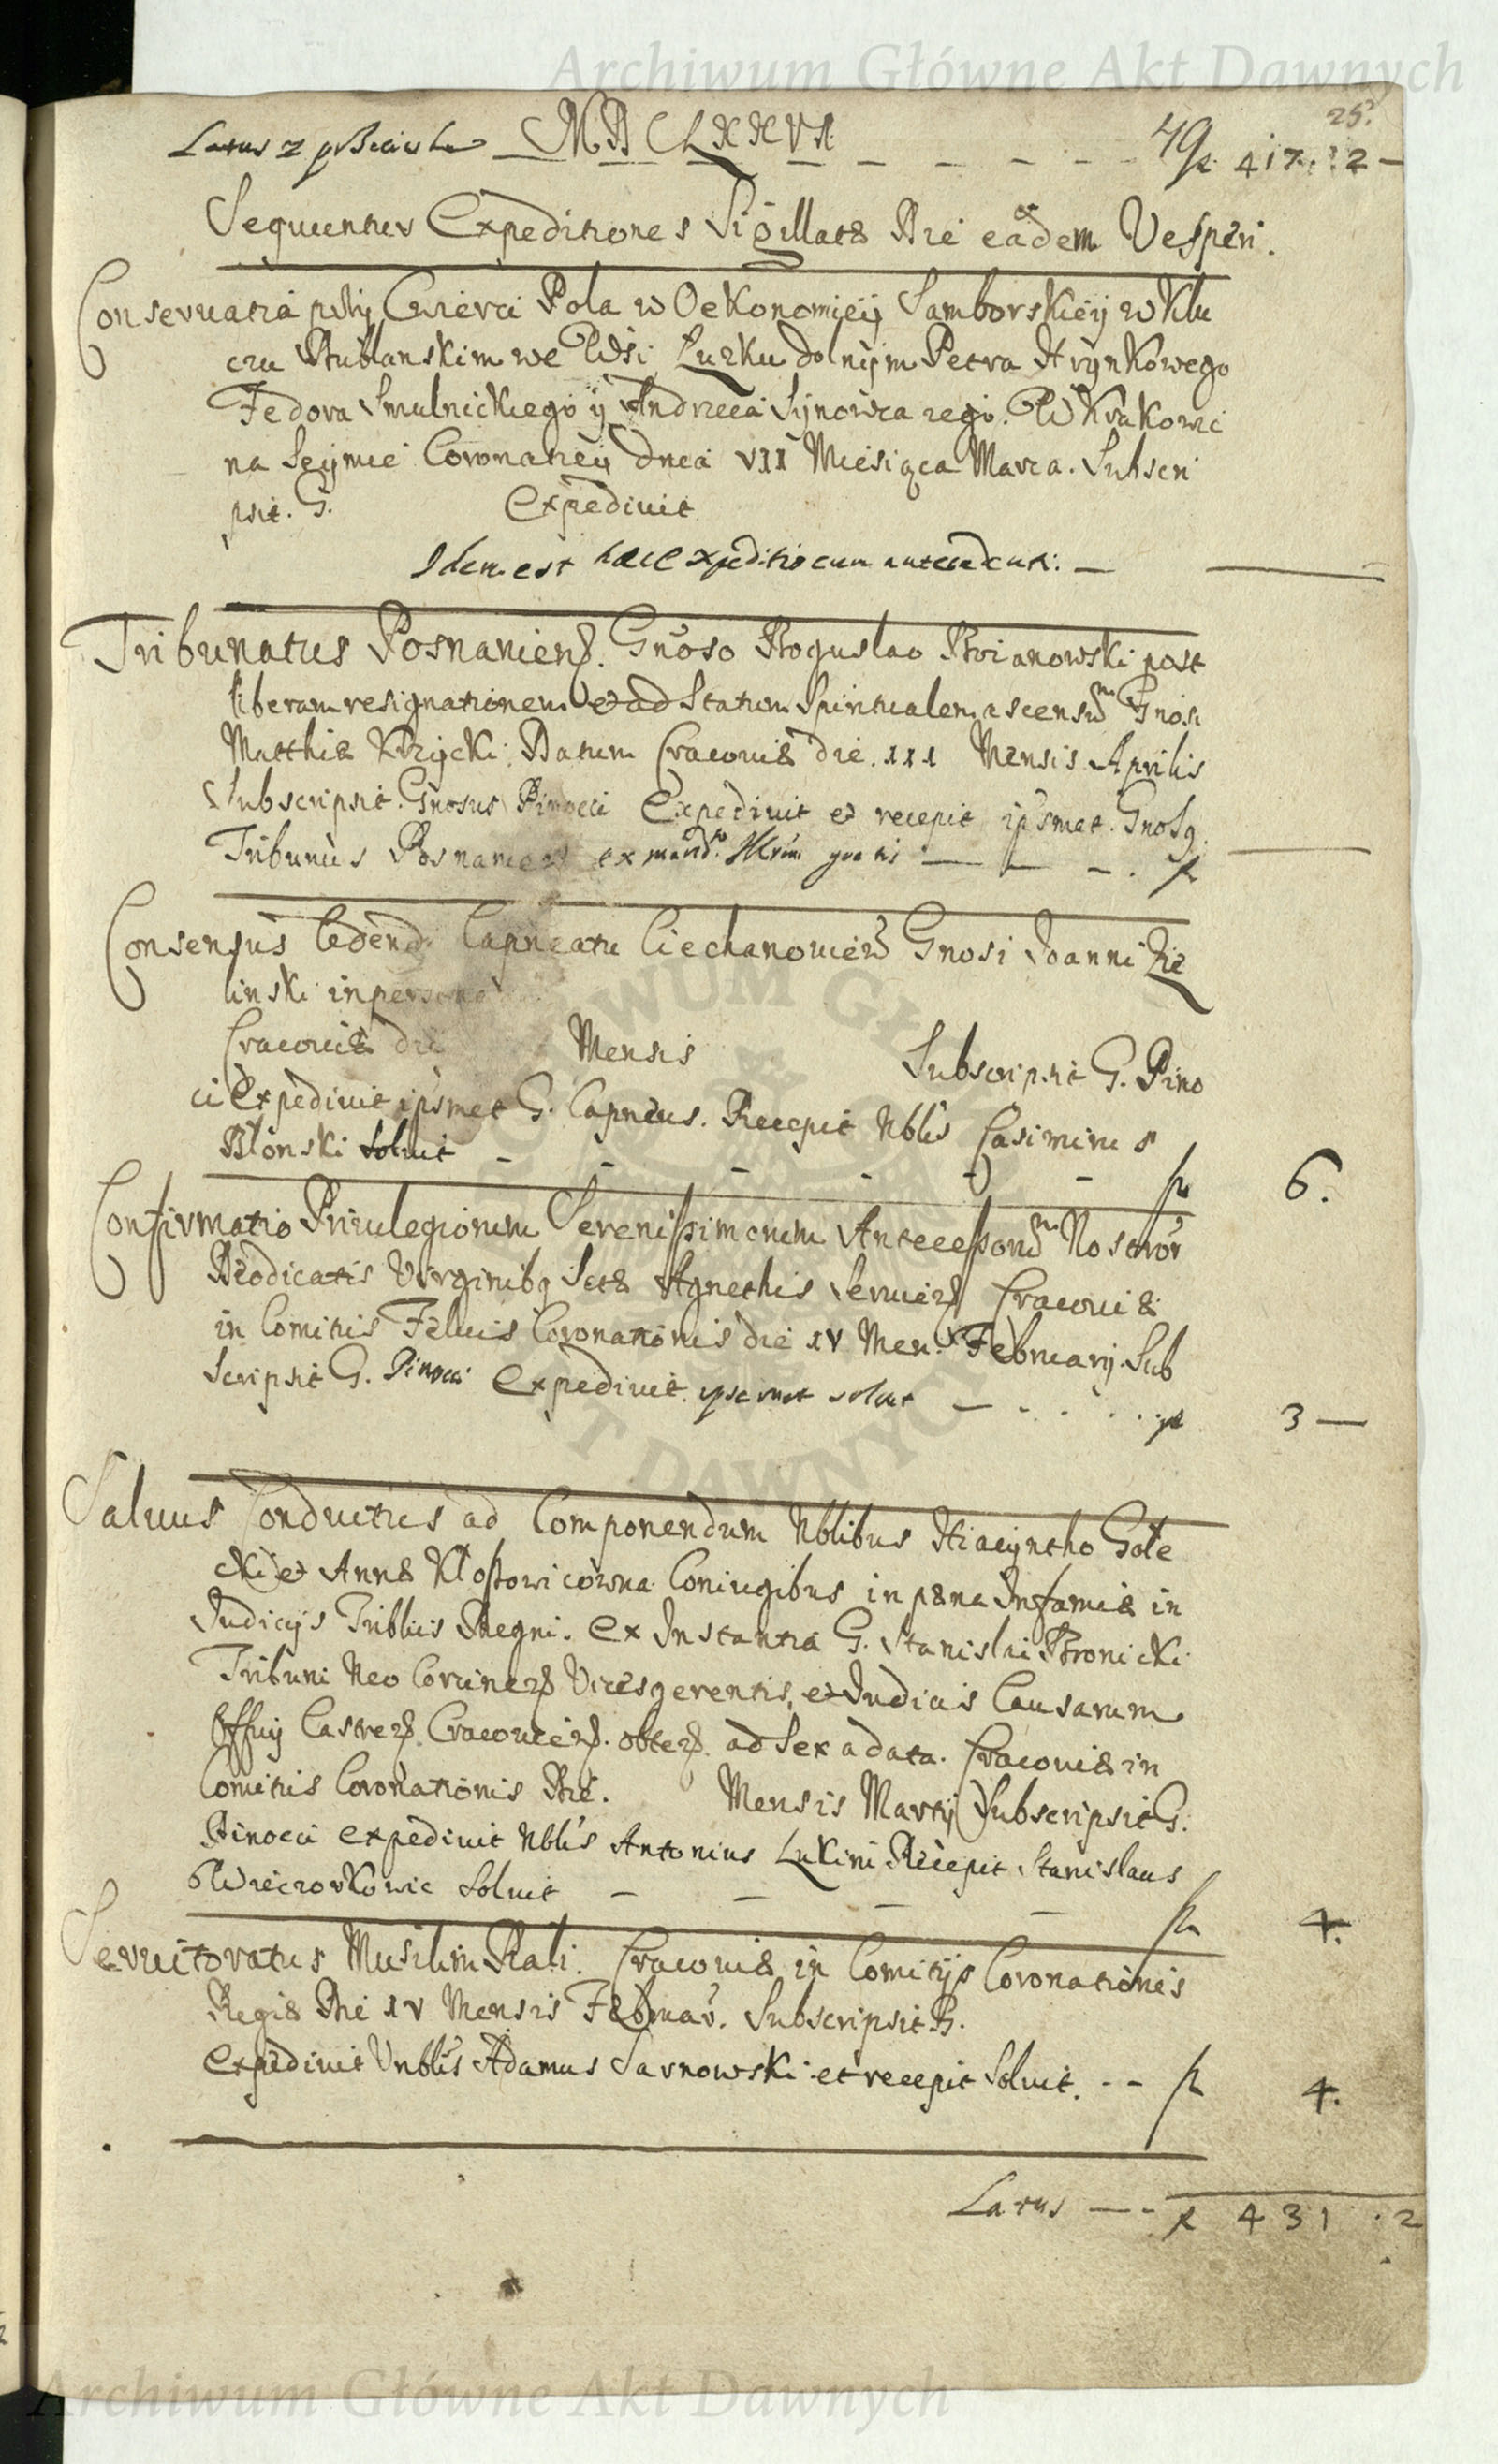 Archiwum Główne Akt Dawnych
25.
Latus z MDCLXXVI 79 417. 12 —
Sequuntur Expeditiones Sigillatæ Die eadem Vesperi.
Conservatia Cwierci Pola w Oekonomieÿ Samborskieÿ w Klu
czu Dublanskim we Wsi Łuzku dolnÿm Petra Hrÿnkowego
Fedora Smulnickiego ÿ Andrzeia Sÿnowca iego. W Krakowie
na Seÿmie Coronatieÿ dnia VII Miesiąca Marca. Subscri
psit. G. Expedivit
Idem est hæc expeditio cum antecedenti. —
Tribunatus Posnanien̄. Gnoso Boguslao Boianowski post
liberam resignationem et ad Statum Spiritualem ascensū Gnosi
Matthiæ Krzÿcki. Datum Cracoviæ die. III Mensis Aprilis
Subscripsit. Gnosus Pinocci Expedivit et recepit ipsmet. Gnosq
Tribunus Posnanien̄ ex mand. gratis
Consensus Cedendi Capneatu Ciechanovien̄ Gnosi Joanni Zie
linski in persona
Cracoviæ die Mensis Subscripsit G. Pino
ci Expedivit ipsmet G. Capneus. Recepit Nblis Casimirus
Błonski Soluit 6.
Confirmatio Privilegiorum Serenissimorum Antecessorū Nostror
Deodicatis Virginibq Sctæ Agnethis Cracoviæ
in Comitiis Felicis Coronationis die IV Men. Februarij. Sub
scripsit G. Pinocci Expedivit. ipsemet soluit 3 —
Salvus Conductus ad Componendum Nblibus Hiacÿntho Gole
cki et Annæ Kłossowicowna Coniugibus in pæna Infamiæ in
Judicijs Triblis Regni. Ex Instantia G. Stanislai Bronicki
Tribuni Neo Vicesgerentis, et Judicis Causarum
Offij Castren̄. Cracovien̄. obten̄. ad Sex a data. Cracoviæ in
Comitiis Coronationis Die. Mensis Martij Subscripsit G.
Pinocci Expedivit Nblis Antonius Lukini Recepit Stanislaus
Wieczorkowic Soluit 4.
Servitoratus Rali. Cracoviæ in Comitijs Coronationis
Regiæ Die IV Mensis Februar. Subscripsit R.
Expedivit Vnblis Adamus Sarnowski et recepit Soluit. 4.
Latus 431 . 2
Archiwum Główne Akt Dawnych